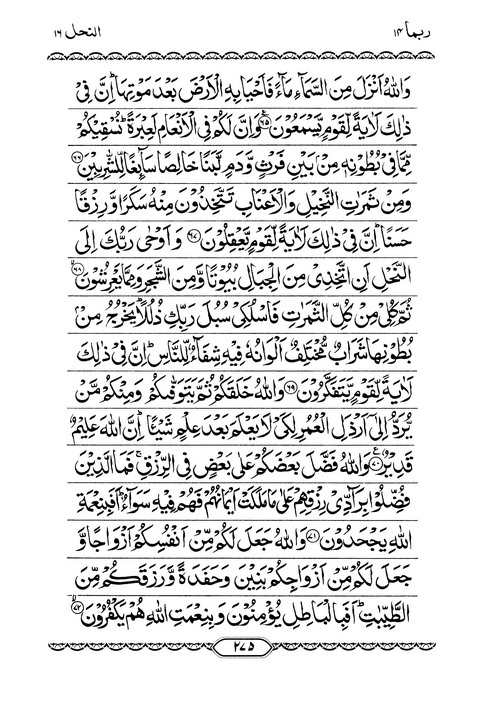 ربما ١٤
النحل ١٦
وَاللّٰهُ اَنْزَلَ مِنَ السَّمَآءِ مَآءً فَاَحْيَا بِهِ الْاَرْضَ بَعْدَ مَوْتِهَا ؕ اِنَّ فِیْ
ذٰلِكَ لَاٰيَةً لِّقَوْمٍ يَّسْمَعُوْنَ ۟۶۵ وَاِنَّ لَكُمْ فِی الْاَنْعَامِ لَعِبْرَةً ؕ نُسْقِيْكُمْ
مِّمَّا فِیْ بُطُوْنِهٖ مِنْۢ بَيْنِ فَرْثٍ وَّدَمٍ لَّبَنًا خَالِصًا سَآئِغًا لِّلشّٰرِبِيْنَ ۟۶۶
وَمِنْ ثَمَرٰتِ النَّخِيْلِ وَالْاَعْنَابِ تَتَّخِذُوْنَ مِنْهُ سَكَرًا وَّرِزْقًا
حَسَنًا ؕ اِنَّ فِیْ ذٰلِكَ لَاٰيَةً لِّقَوْمٍ يَّعْقِلُوْنَ ۟۶۷ وَاَوْحٰی رَبُّكَ اِلَی
النَّحْلِ اَنِ اتَّخِذِیْ مِنَ الْجِبَالِ بُيُوْتًا وَّمِنَ الشَّجَرِ وَمِمَّا يَعْرِشُوْنَ ۟۶۸
ثُمَّ كُلِیْ مِنْ كُلِّ الثَّمَرٰتِ فَاسْلُكِیْ سُبُلَ رَبِّكِ ذُلُلًا ؕ يَخْرُجُ مِنْۢ
بُطُوْنِهَا شَرَابٌ مُّخْتَلِفٌ اَلْوَانُهٗ فِيْهِ شِفَآءٌ لِّلنَّاسِ ؕ اِنَّ فِیْ ذٰلِكَ
لَاٰيَةً لِّقَوْمٍ يَّتَفَكَّرُوْنَ ۟۶۹ وَاللّٰهُ خَلَقَكُمْ ثُمَّ يَتَوَفّٰىكُمْ وَمِنْكُمْ مَّنْ
يُّرَدُّ اِلٰۤی اَرْذَلِ الْعُمُرِ لِكَیْ لَا يَعْلَمَ بَعْدَ عِلْمٍ شَيْئًا ؕ اِنَّ اللّٰهَ عَلِيْمٌ
قَدِيْرٌ ۟۷۰ وَاللّٰهُ فَضَّلَ بَعْضَكُمْ عَلٰی بَعْضٍ فِی الرِّزْقِ ۚ فَمَا الَّذِيْنَ
فُضِّلُوْا بِرَآدِّیْ رِزْقِهِمْ عَلٰی مَا مَلَكَتْ اَيْمَانُهُمْ فَهُمْ فِيْهِ سَوَآءٌ ؕ اَفَبِنِعْمَةِ
اللّٰهِ يَجْحَدُوْنَ ۟۷۱ وَاللّٰهُ جَعَلَ لَكُمْ مِّنْ اَنْفُسِكُمْ اَزْوَاجًا وَّ
جَعَلَ لَكُمْ مِّنْ اَزْوَاجِكُمْ بَنِيْنَ وَحَفَدَةً وَّرَزَقَكُمْ مِّنَ
الطَّيِّبٰتِ ؕ اَفَبِالْبَاطِلِ يُؤْمِنُوْنَ وَبِنِعْمَتِ اللّٰهِ هُمْ يَكْفُرُوْنَ ۟۷۲
۲۷۵